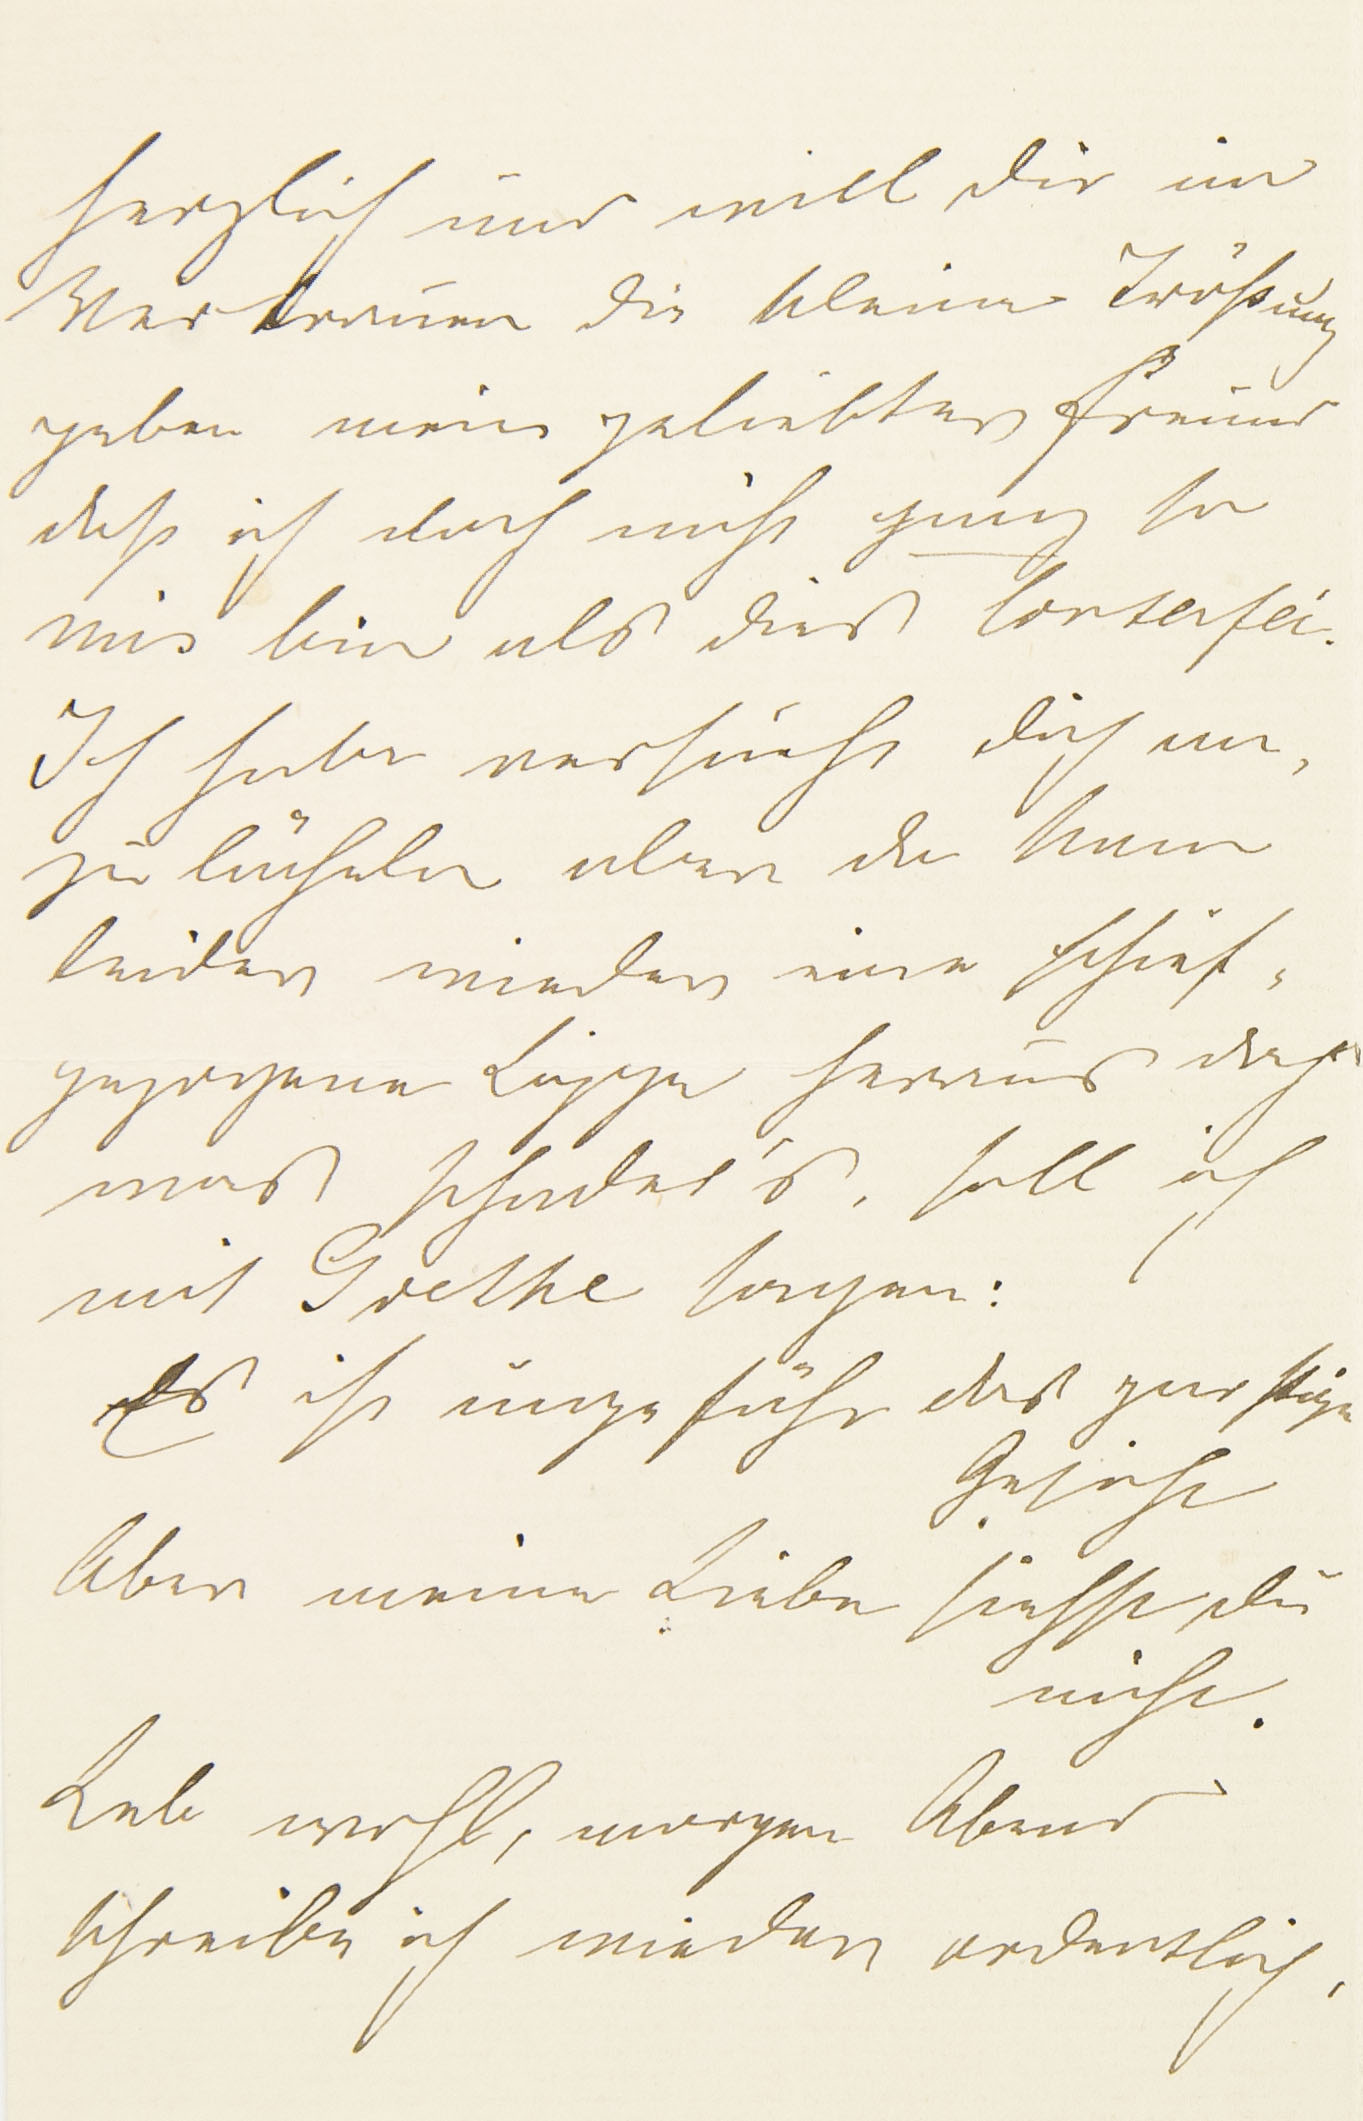 herzlich und will dir im
Vertrauen die kleine Tröstung
geben mein geliebter Freund
daß ich doch nicht ganz so
mies bin als dies Conterfei.
Ich habe versucht dich an,
zu lächeln aber da kam
leider wieder eine schief,
gezogene Lippe heraus doch
was schadet's, soll ich
mit Goethe sagen:
Es ist ungefähr das garstige
Gesicht
Aber meine Liebe siehst du
nicht.
Leb wohl, morgen Abend
schreibe ich wieder ordentlich,